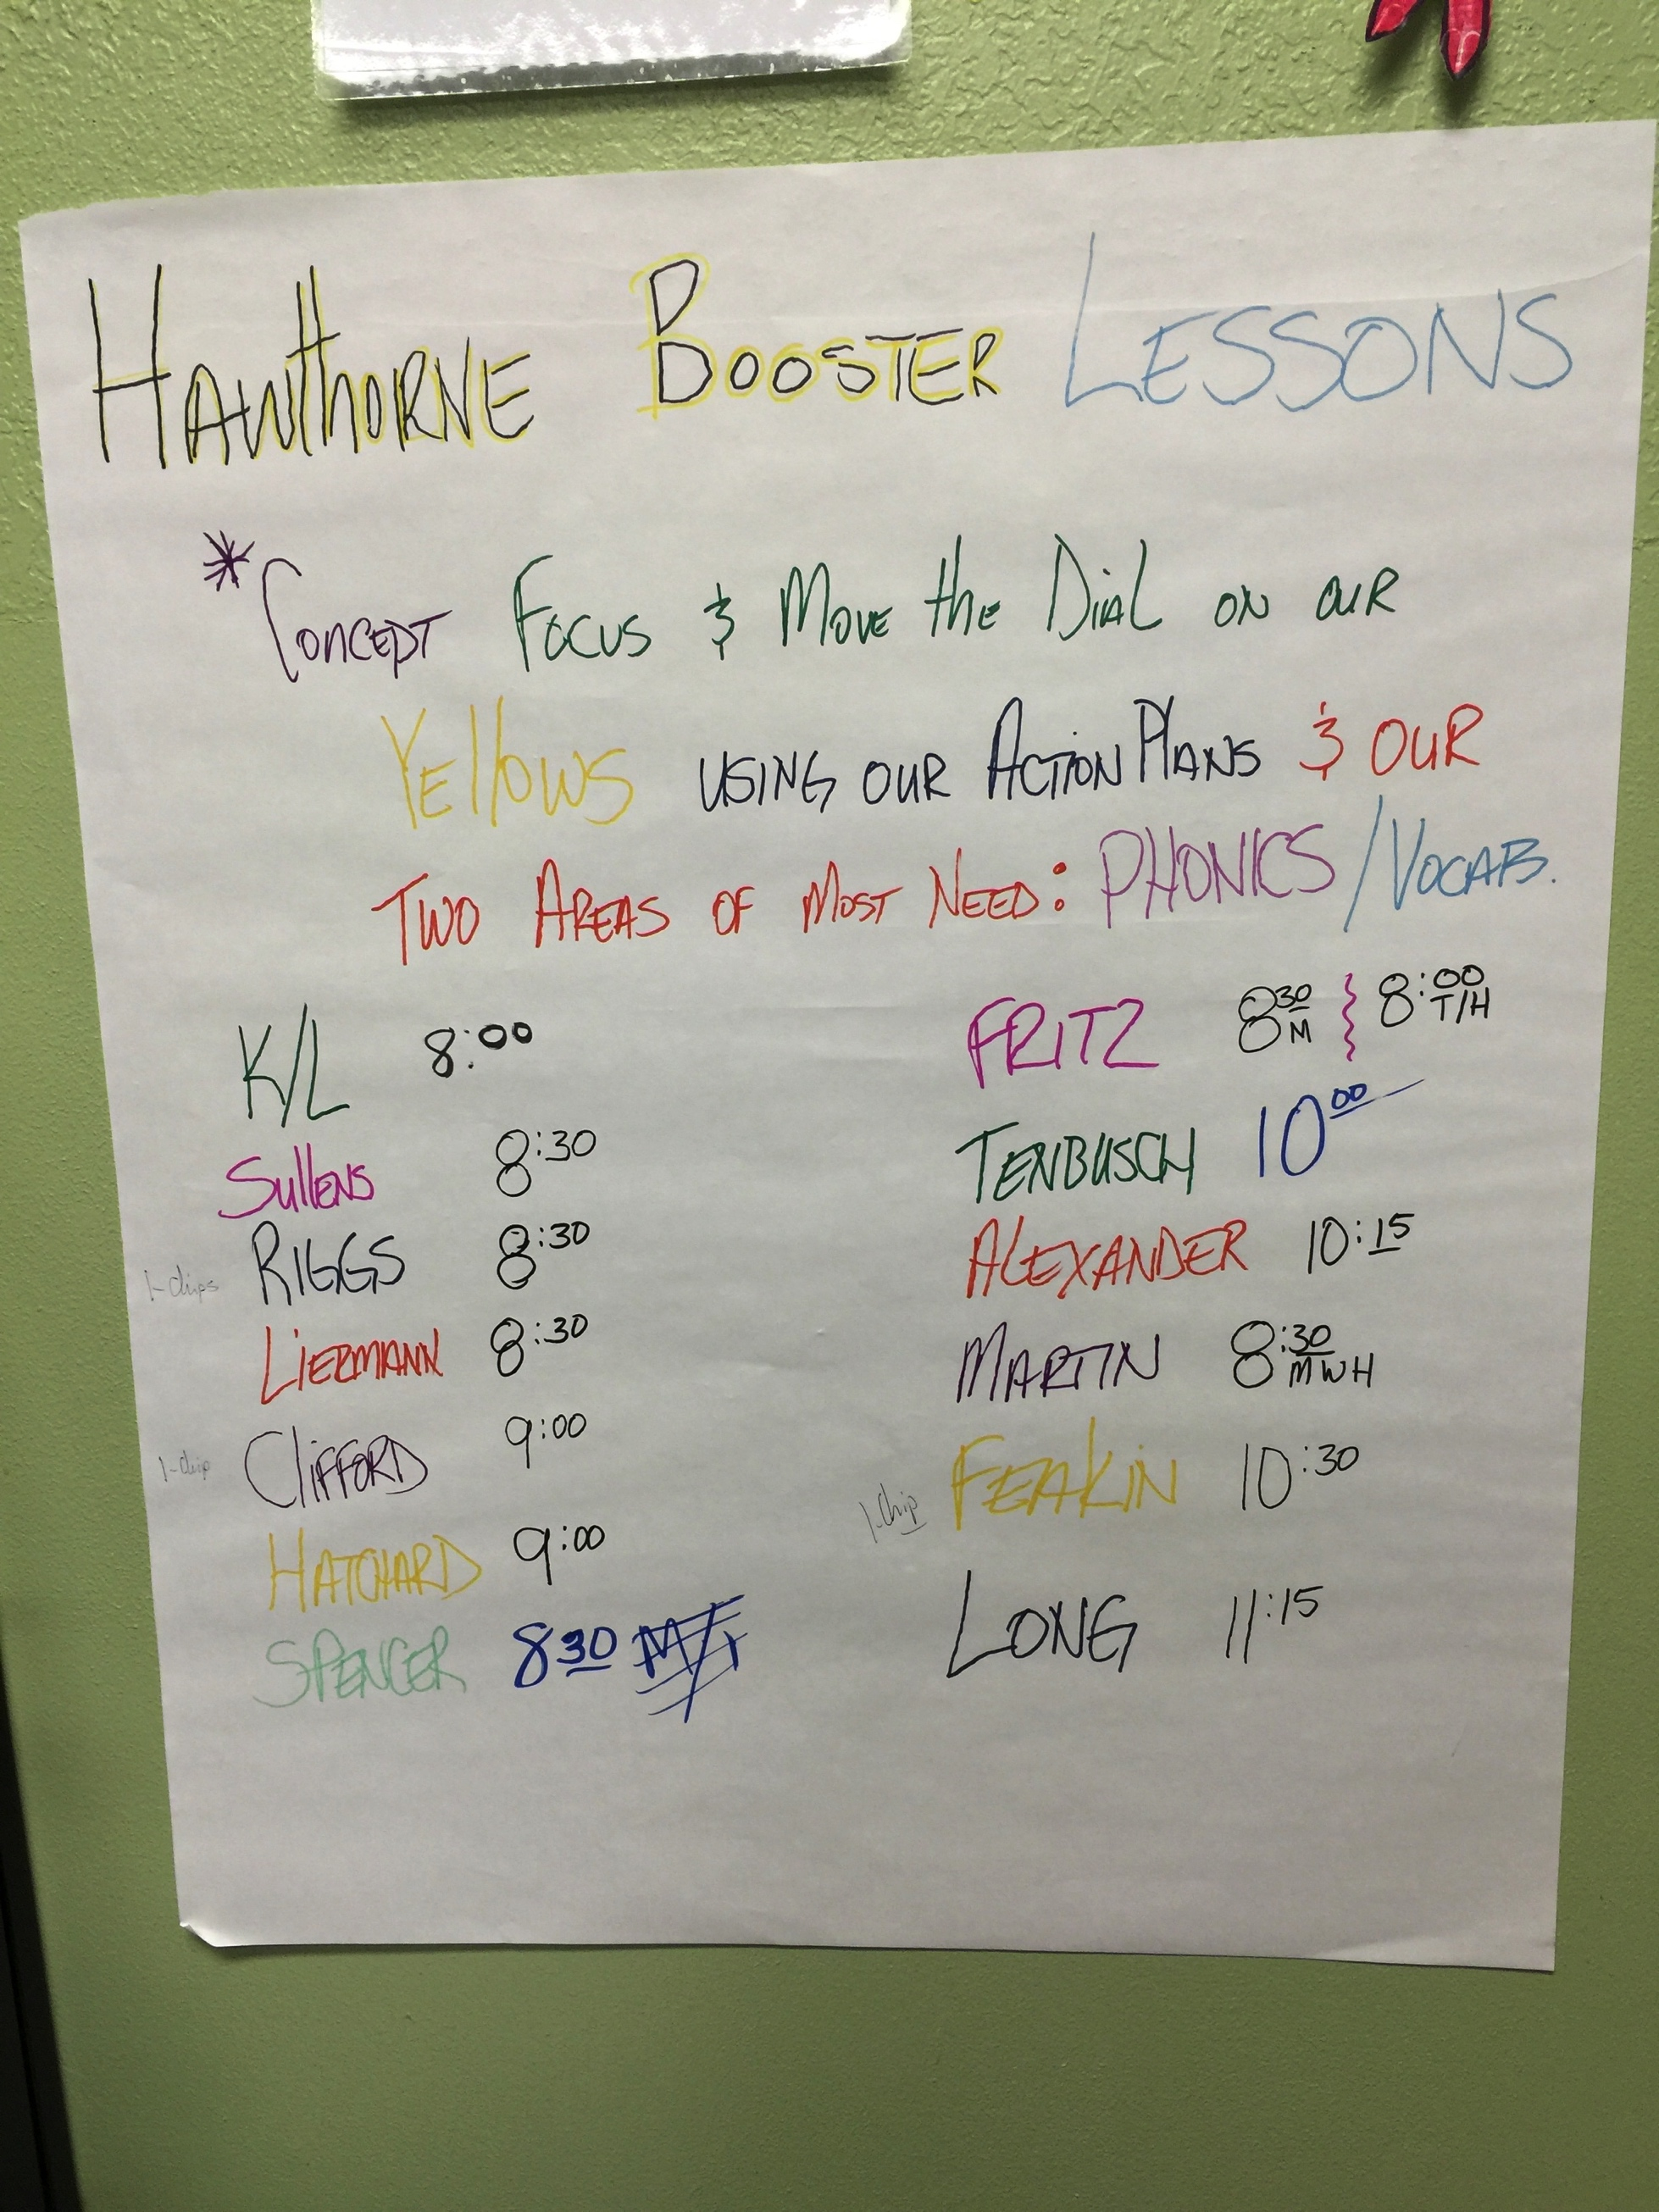 HAWThORNE BOOSTER LESSONS
*CONCEPT FOCUS & MOVE the DIAL ON OUR
YEllOWS USING OUR ACTION PLANS & OUR
TWO AREAS OF MOST NEED: PHONICS / VOCAB.
K/L 8:00
SullENS 8:30
1-Chips RIGGS 8:30
LIERMANN 8:30
1-Chip CLIFFORD 9:00
HATCHARD 9:00
SPENCER 8 30
FRITZ 8 30 M } 8:00 T/H
TENBUSCH 10 00
ALEXANDER 10:15
MARTIN 8:30 MWH
1-Chip FEAKIN 10:30
LONG 11:15